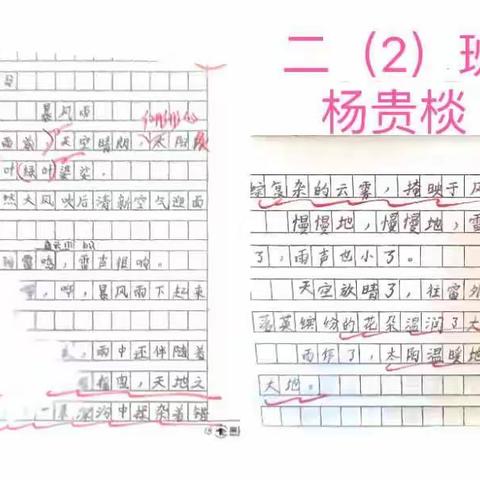 暴风雨
雨前，天空晴朗，太阳
叶绿叶
然大风吹后清新空气迎面
雷鸣，雷声很响。
暴风雨下起来
，雨中还伴随着
，天地之
中掺杂着错
二（2）班
杨贵棪
综复杂的云雾，掩映于风
慢慢地，慢慢地，雷
了，雨声也小了。
天空放晴了，往窗外
落英缤纷的花朵温润了大
雨停了，太阳温暖地
大地。